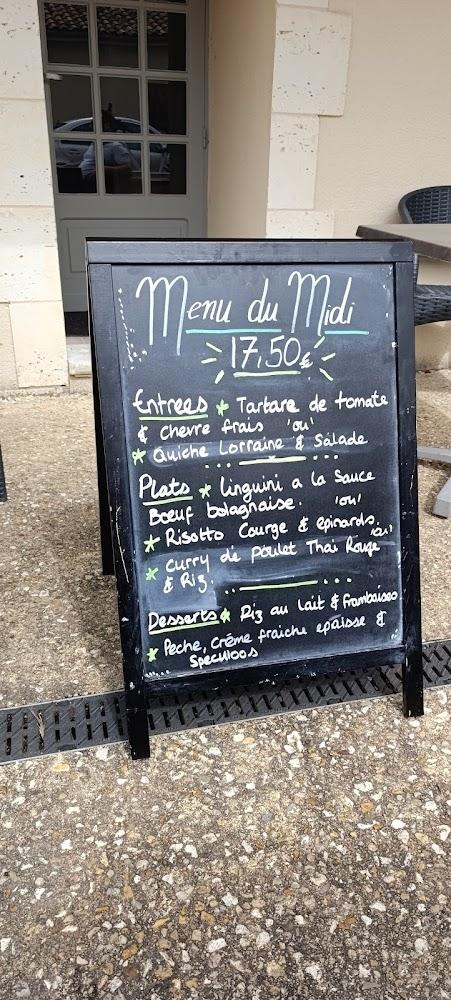 Menu du Midi
17,50€
Entrees * Tartare de tomate
& chevre frais 'ou'
* Quiche Lorraine & Salade
Plats * linguini a la Sauce
Bœuf bolagnaise. 'ou'
* Risotto Courge & epinards. 'ou'
* curry de poulet Thai Rouge
& Riz.
Desserts * Riz au lait & framboises
* Peche, crême fraiche epaisse &
Speculoos